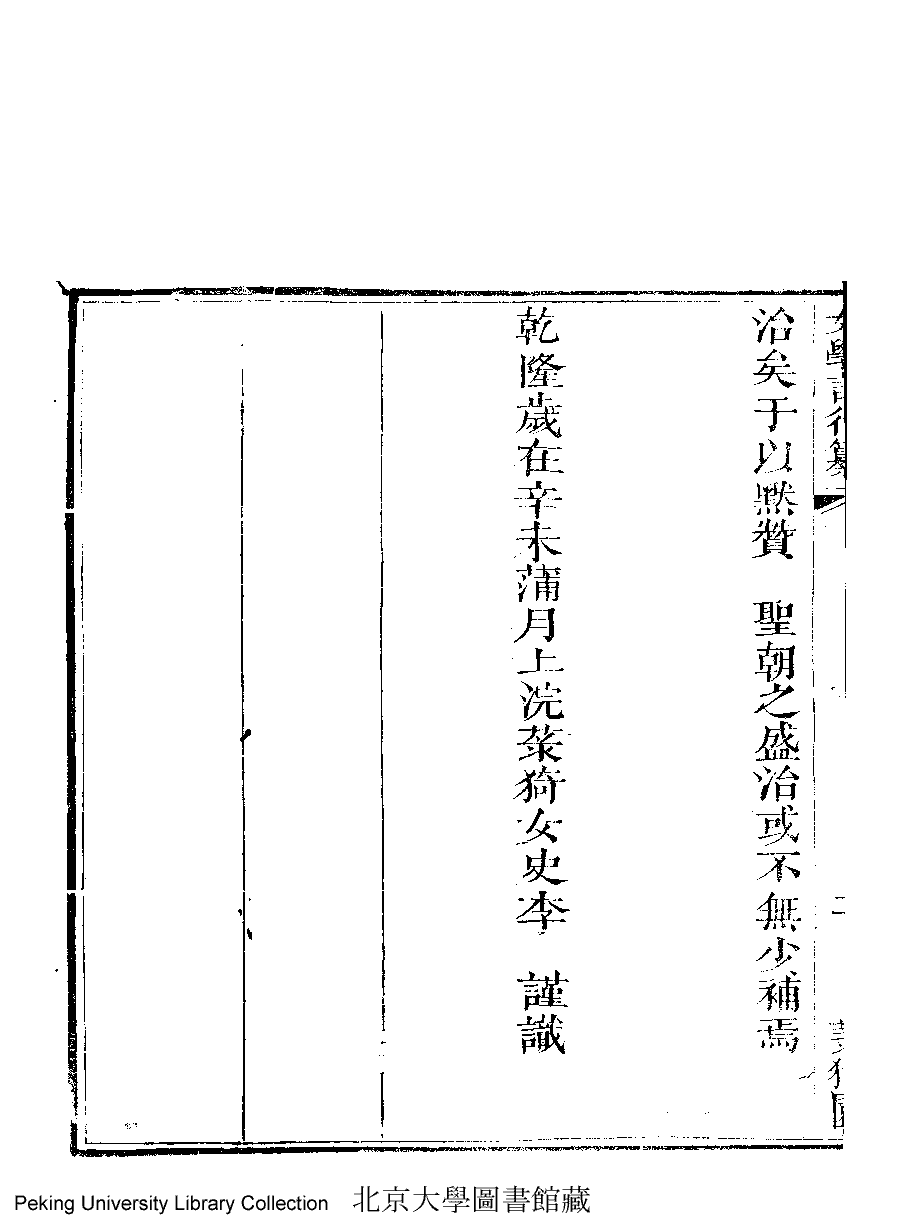 女學言行纂
二
治矣于以黙賛　聖朝之盛治或不無少補焉
乾隆歲在辛未蒲月上浣菉猗女史李　謹識
Peking University Library Collection 北京大學圖書館藏